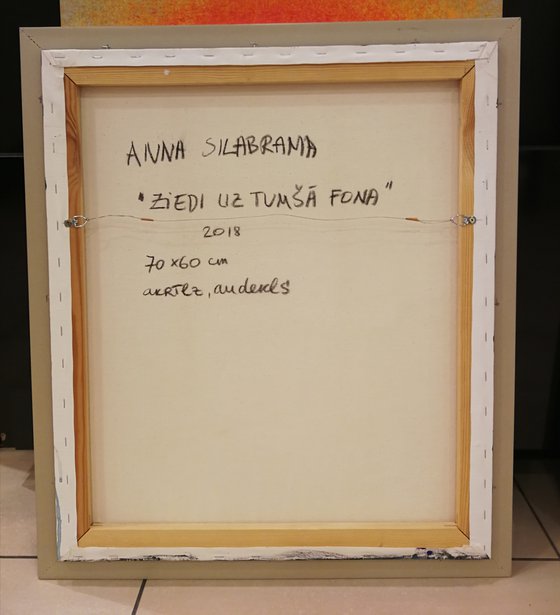 ANNA SILABRAMA
"ZIEDI UZ TUMŠĀ FONA"
2018
70x60 cm
akrils, audekls